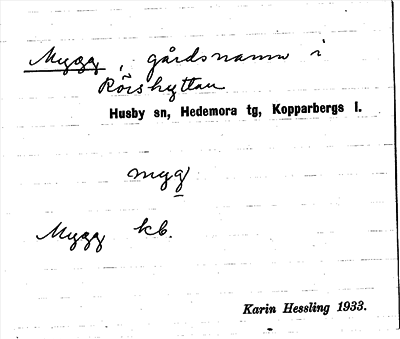 Mygg, gårdsnamn i
Rörshyttan
Husby sn, Hedemora tg, Kopparbergs l.
myg
Mygg kb.
Karin Hessling 1933.